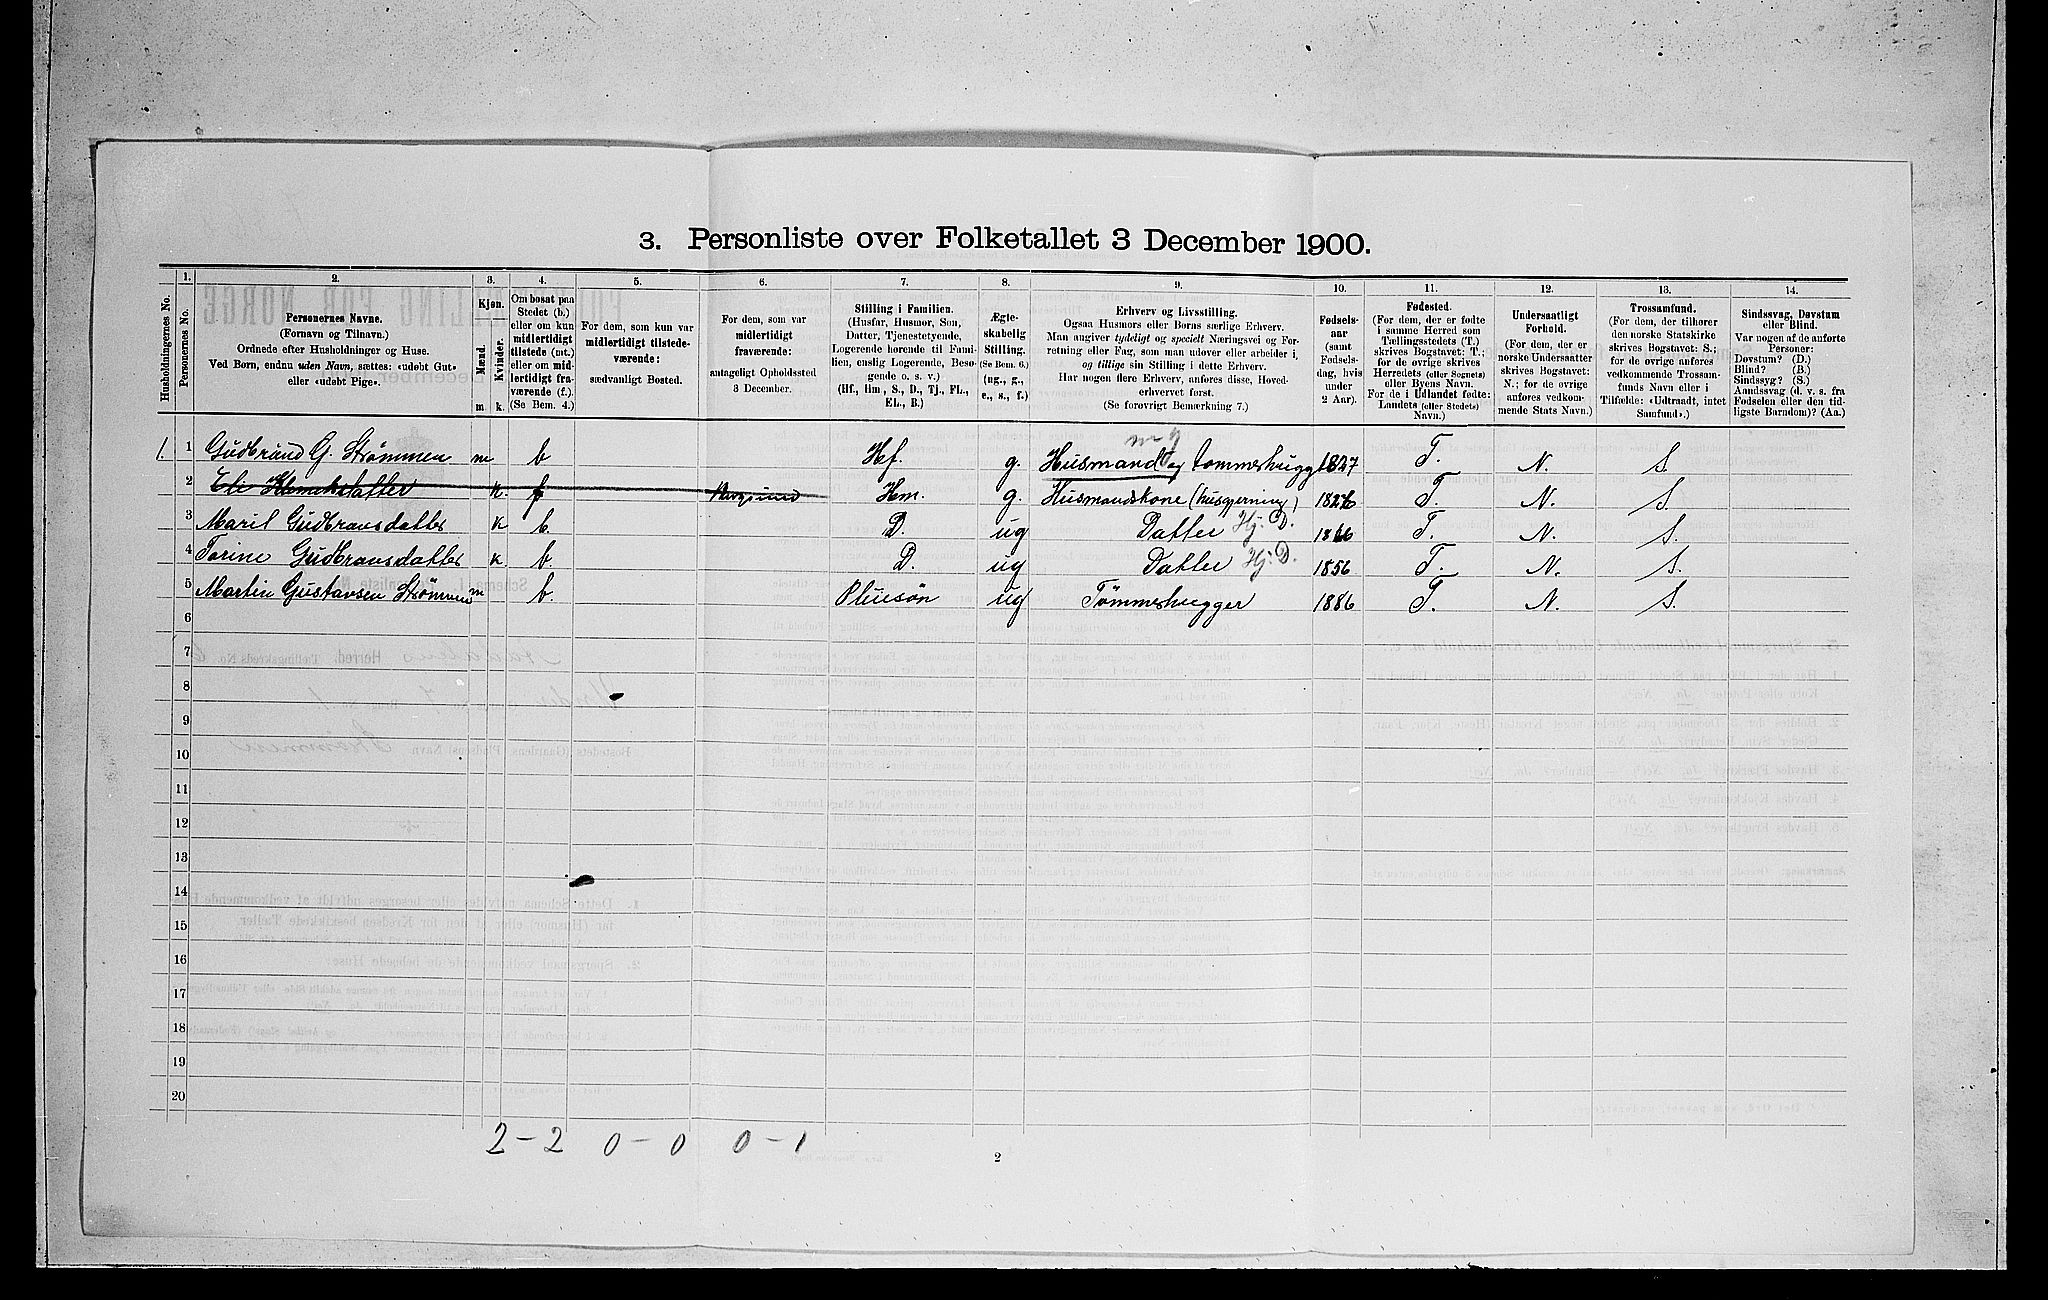 3. Personliste over Folketallet 3 December 1900.
Husholdningernes No.
1.
Personernes No.
2.
Personernes Navne.
(Fornavn og Tilnavn.)
Ordnede efter Husholdninger og Huse.
Ved Børn, endnu uden Navn, sættes: «udøbt Gut»
eller «udøbt Pige».
3.
Kjøn.
Mænd.
Kvinder.
m. k.
4.
Om bosat paa
Stedet (b.)
eller om kun
midlertidigt
tilstede (mt.)
eller om mid-
lertidigt fra-
værende (f.).
(Se Bem. 4.)
5.
For dem, som kun var
midlertidigt tilstede-
værende:
sædvanligt Bosted.
6.
For dem, som var
midlertidigt
fraværende:
antageligt Opholdssted
3 December.
7.
Stilling i Familien.
(Husfar, Husmor, Søn,
Datter, Tjenestetyende,
Logerende hørende til Fami-
lien, enslig Logerende, Besø-
gende o. s. v.)
(Hf., Hm., S., D., Tj., FL.,
EL., B.)
8.
Ægte-
skabelig
Stilling.
(Se Bem. 6.)
(ug., g.,
e., s., f.)
9.
Erhverv og Livsstilling.
Ogsaa Husmors eller Børns særlige Erhverv.
Man angiver tydeligt og specielt Næringsvei og For-
retning eller Fag, som man udøver eller arbeider i,
og tillige sin Stilling i dette Erhverv.
Har nogen flere Erhverv, anføres disse, Hoved-
erhvervet først.
(Se forøvrigt Bemærkning 7.)
10.
Fødsels-
aar
(samt
Fødsels-
dag, hvis
under
2 Aar).
11.
Fødested.
(For dem, der er fødte
i samme Herred som
Tællingsstedets (T.)
skrives Bogstavet: T.;
for de øvrige skrives
Herredets (eller Sognets)
eller Byens Navn.
For de i Udlandet fødte:
Landets (eller Stedets)
Navn.)
12.
Undersaatligt
Forhold.
(For dem, der er
norske Undersaatter
skrives Bogstavet:
N.; for de øvrige
anføres vedkom-
mende Stats Navn.)
13.
Trossamfund.
(For dem, der tilhører
den norske Statskirke
skrives Bogstavet: S.;
for de øvrige anføres
vedkommende Trossam-
funds Navn eller i
Tilfælde: «Udtraadt, intet
Samfund».)
14.
Sindssvag, Døvstum
eller Blind.
Var nogen af de anførte
Personer:
Døvstum? (D.)
Blind? (B.)
Sindssyg? (S.)
Aandssvag (d. v. s. fra
Fødselen eller den tid-
ligste Barndom)? (Aa.)
1. 1 Gudbrand G. Strømmen m b Hf. g. Husmand og tømmerhugger 1827 T. N. S.
2 Eli k. f Hm. g. Husmandskone (husgjerning) 1826 T. N. S.
3 Maril Gudbransdatter k b. D. ug Datter Hj: D. 1866 T. N. S.
4 Torine Gudbransdatter k. b. D. ug Datter Hj: D. 1856 T. N. S.
5 Martin Gustavsen Strømmen m b. Pleiesøn ug Tømmerhugger 1886 T. N. S.
6
7
8
9
10
11
12
13
14
15
16
17
18
19
20
2 – 2 0 – 0 0 – 1
2